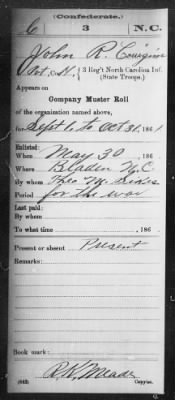 (Confederate.)
C 3 N.C.
John R.
Pvt., Co. H, 3 Reg't North Carolina Inf.
(State Troops.)
Appears on
Company Muster Roll
of the organization named above,
for Sept 1, to Oct 31, 1861
Enlisted:
When May 30, 186
Where Bladen N.C.
By whom Theo M.
Period for the war
Last paid:
By whom
To what time , 186
Present or absent Present
Remarks:
Book mark:
R. K. Meade
Copyist.